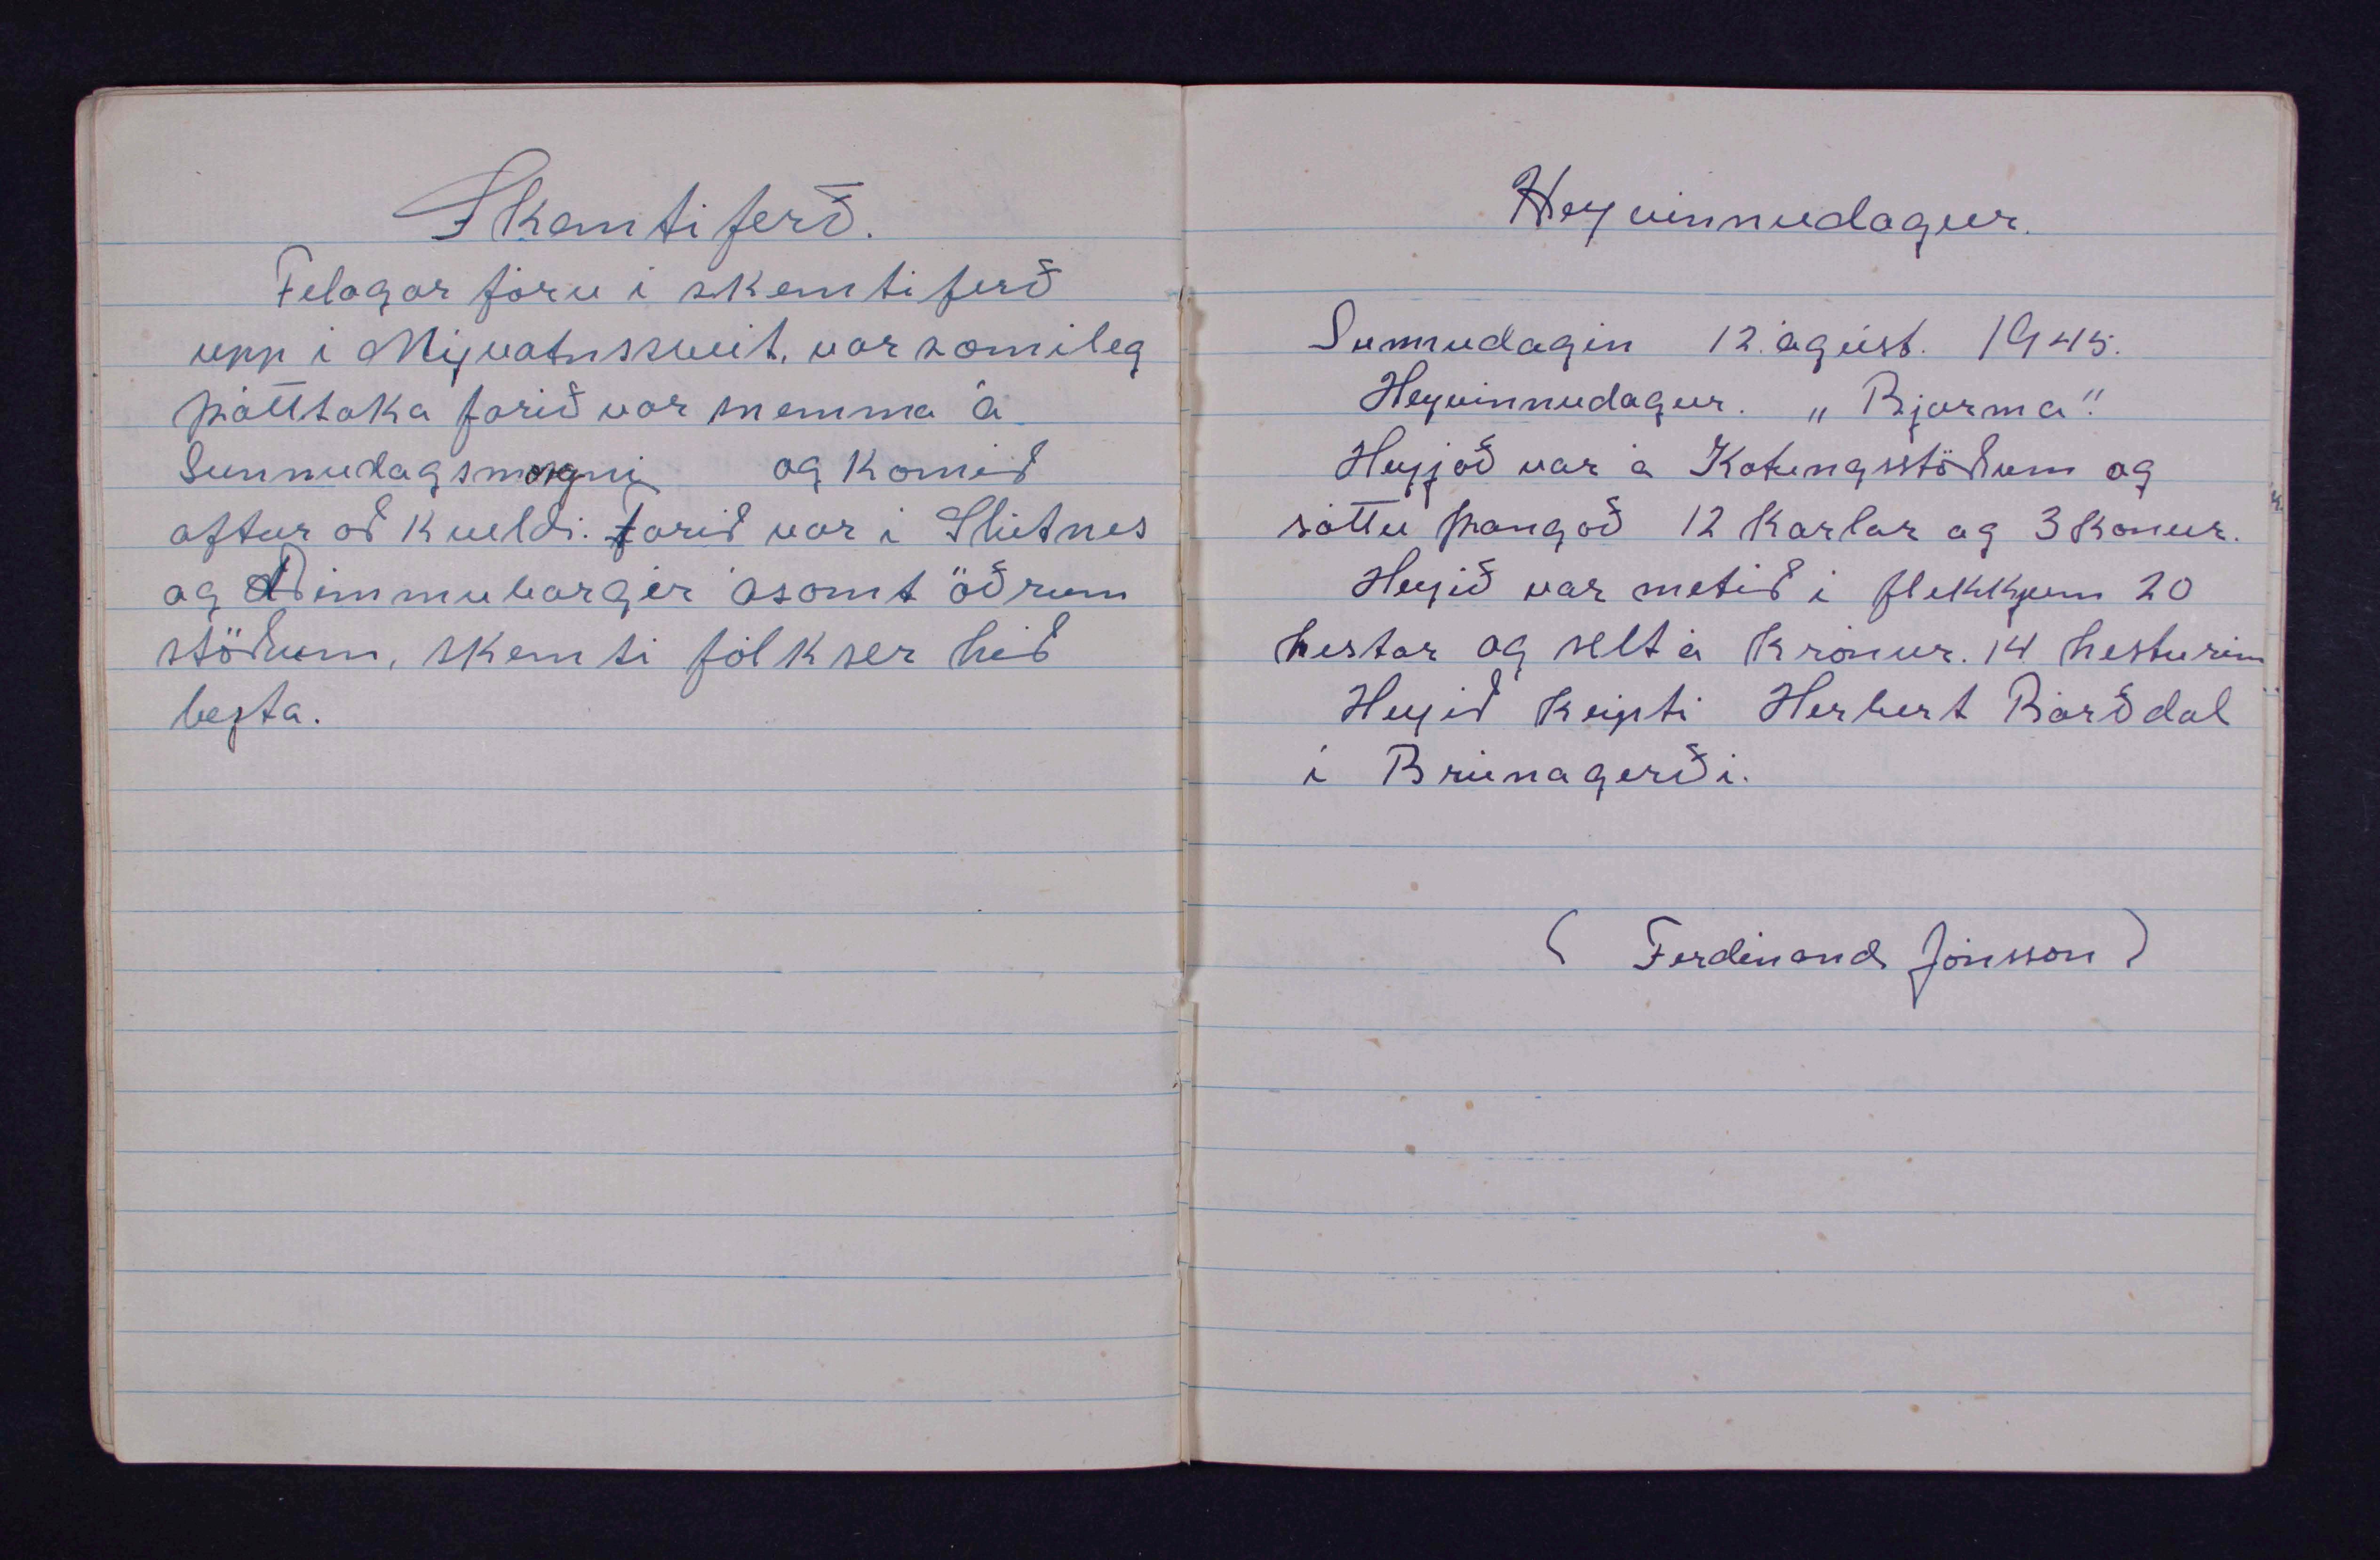 Skemtiferð.
Felagar fóru i skemtiferð
upp i Mývatnssveit, var sæmileg
þátttaka farið var snemma á
Sunnudagsmorgni og komið
aftur að kveldi. farið var i Slútnes
og Dimmuborgir ásamt öðrum
stöðum, skemti fólk ser hið
besta.
Heyvinnudagur.
Sunnudagin 12. ágúst. 1945.
Heyvinnudagur. „Bjarma".
Heyjað var á Kotungsstöðum og
sóttu þangað 12 karlar og 3 konur.
Heyið var metið i flekkjum 20
hestar og selt á krónur. 14 hesturin
Heyið keypti Herbert Bárðdal
í Brúnagerði.
( Ferdinand Jónsson )